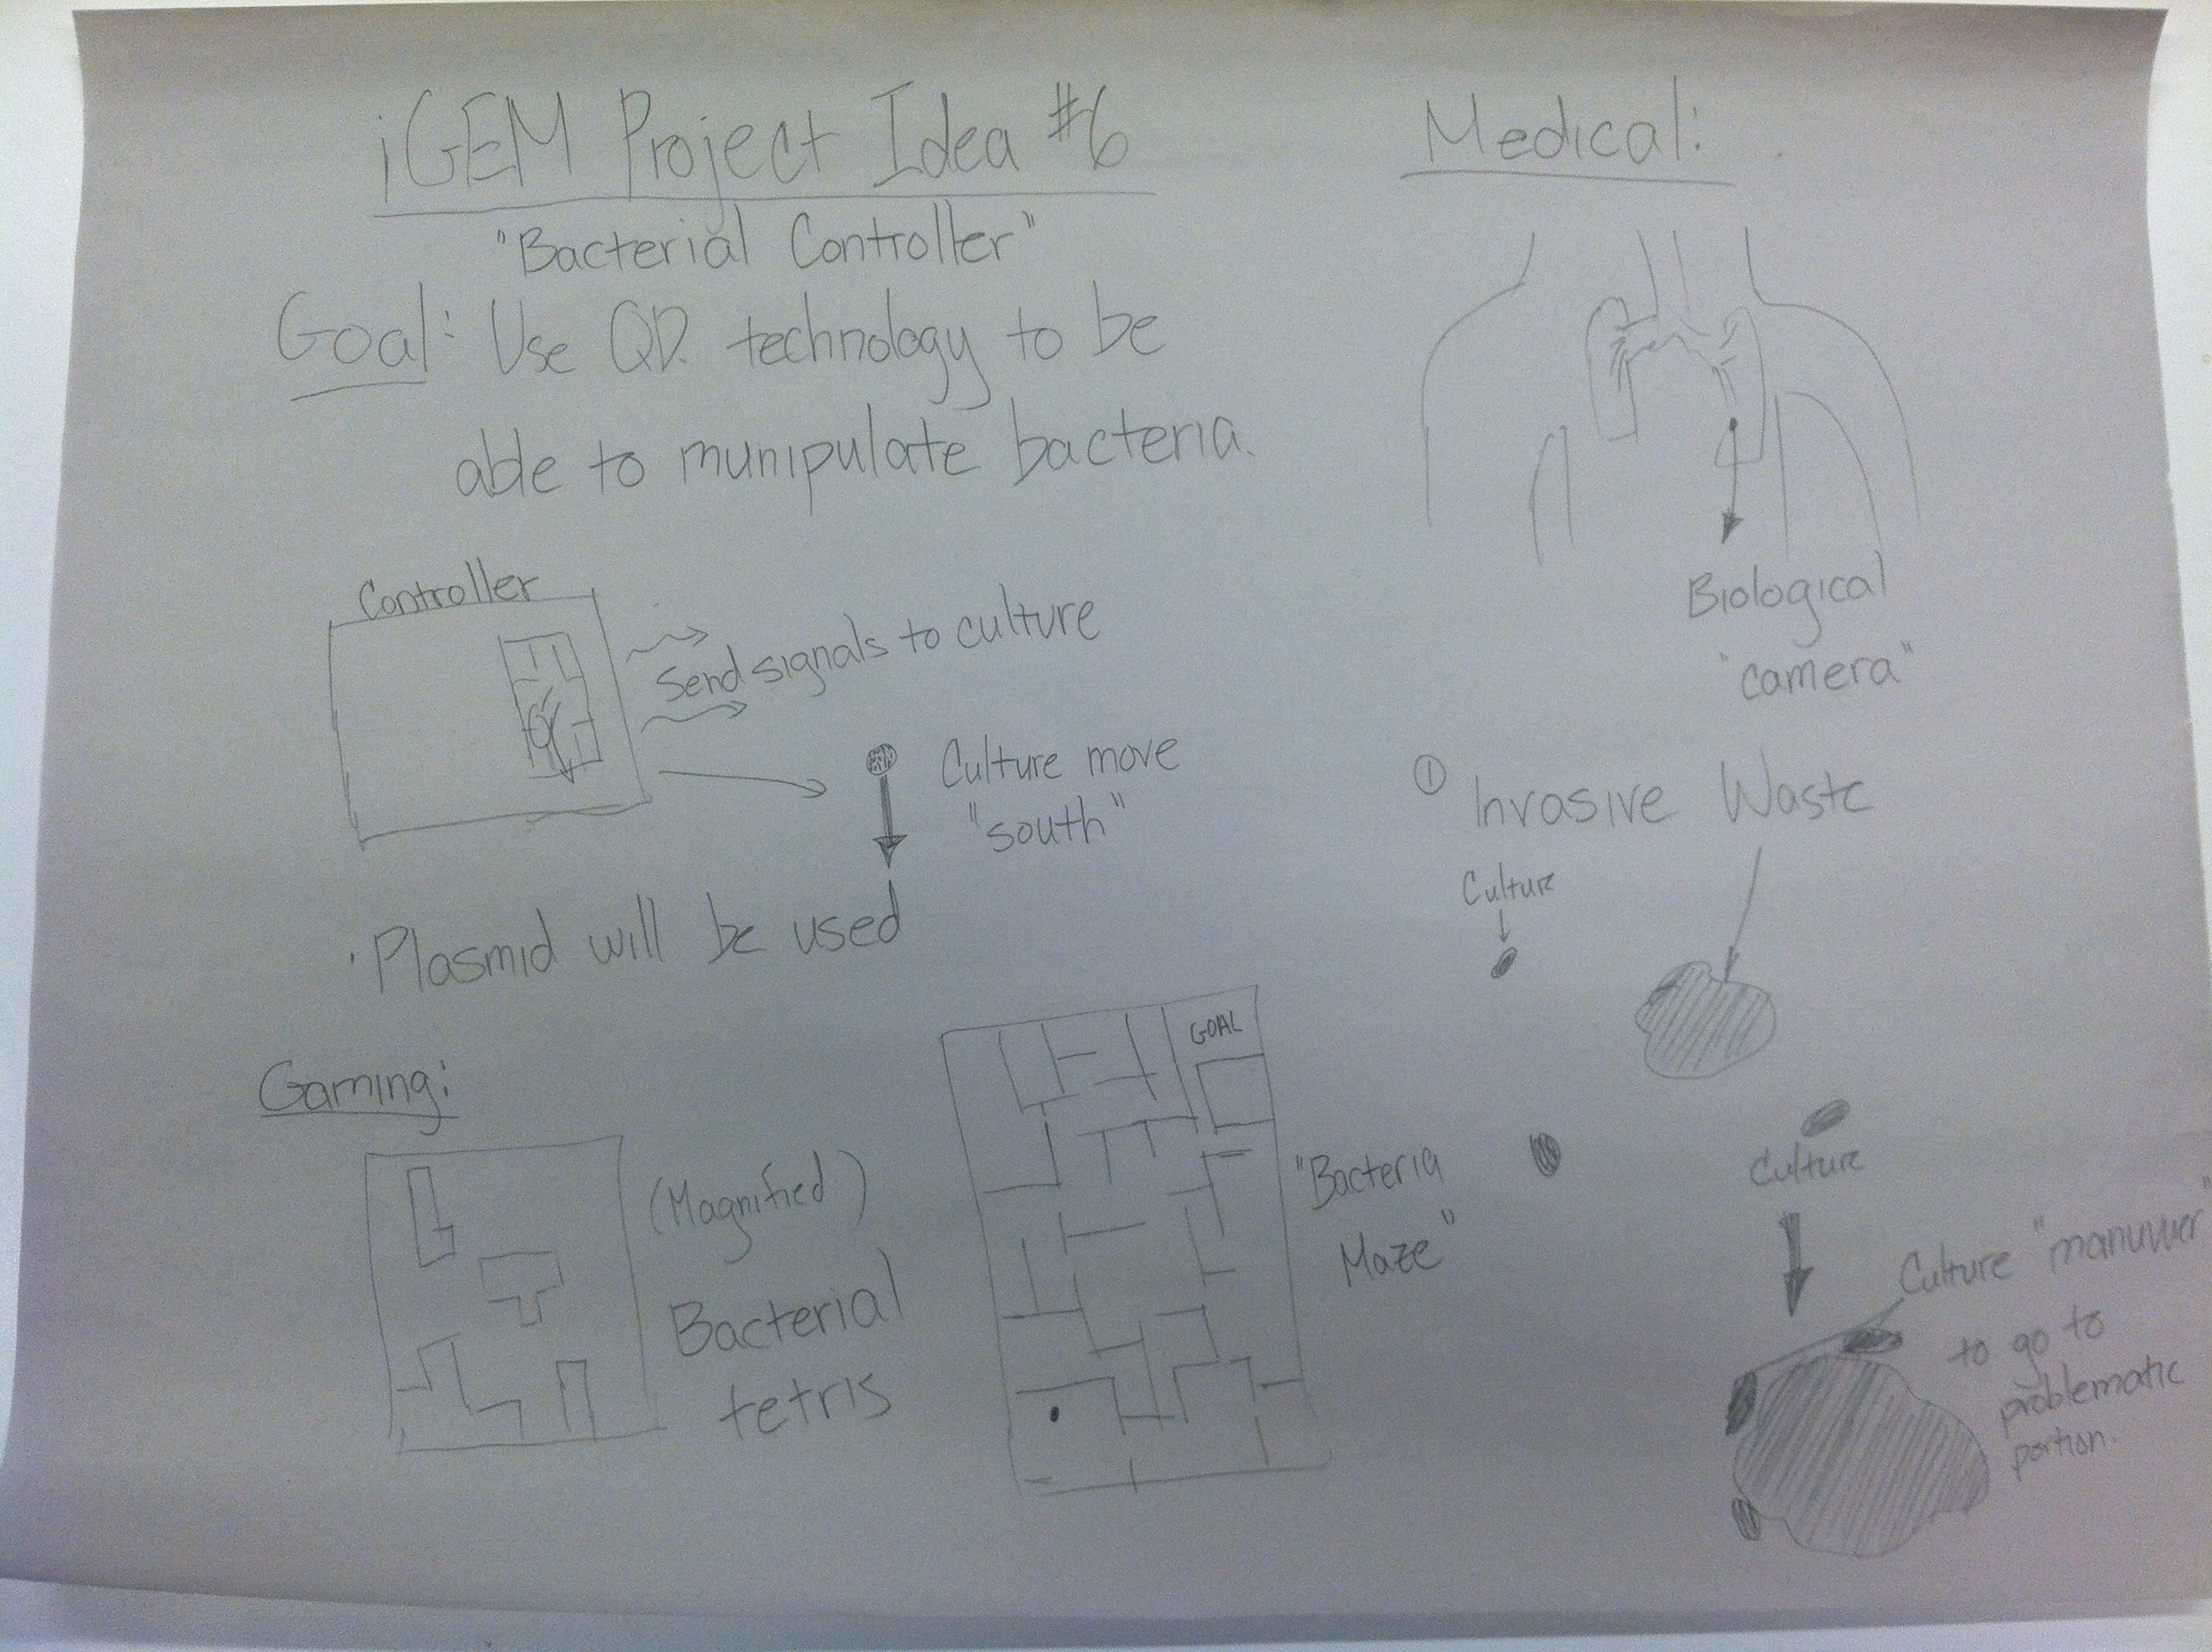 iGEM Project Idea #6
"Bacterial Controller"
Goal: Use QD. technology to be
able to munipulate bacteria.
Controller
Send signals to culture
Culture move
"south"
· Plasmid will be used
Gaming:
(Magnified)
Bacterial
tetris
GOAL
"Bacteria
Maze"
Medical:
Biological
"camera"
① Invasive Waste
Culture
Culture
Culture "manuver"
to go to
problematic
portion.